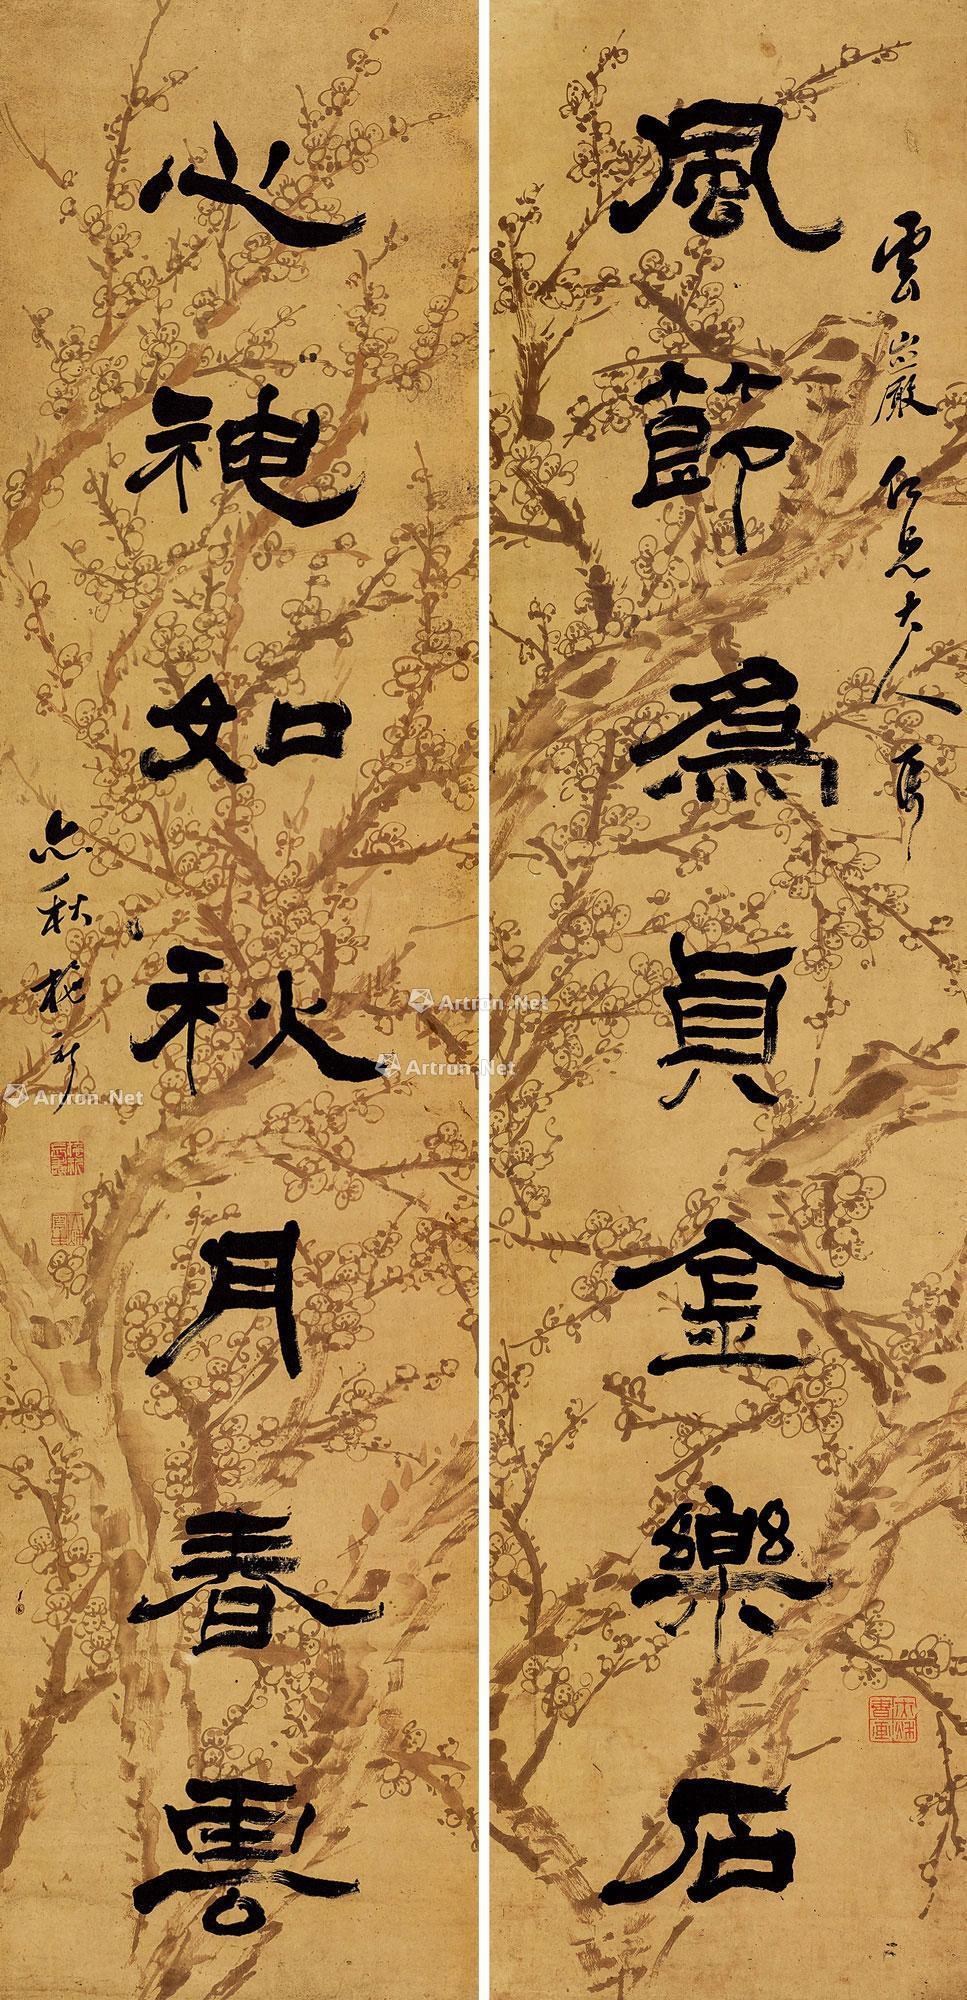 雲巖仁兄大人属
風節為貞金樂石
心神如秋月春雲
亦秋楊
Artron.Net
Artron.Net
Artron.Net